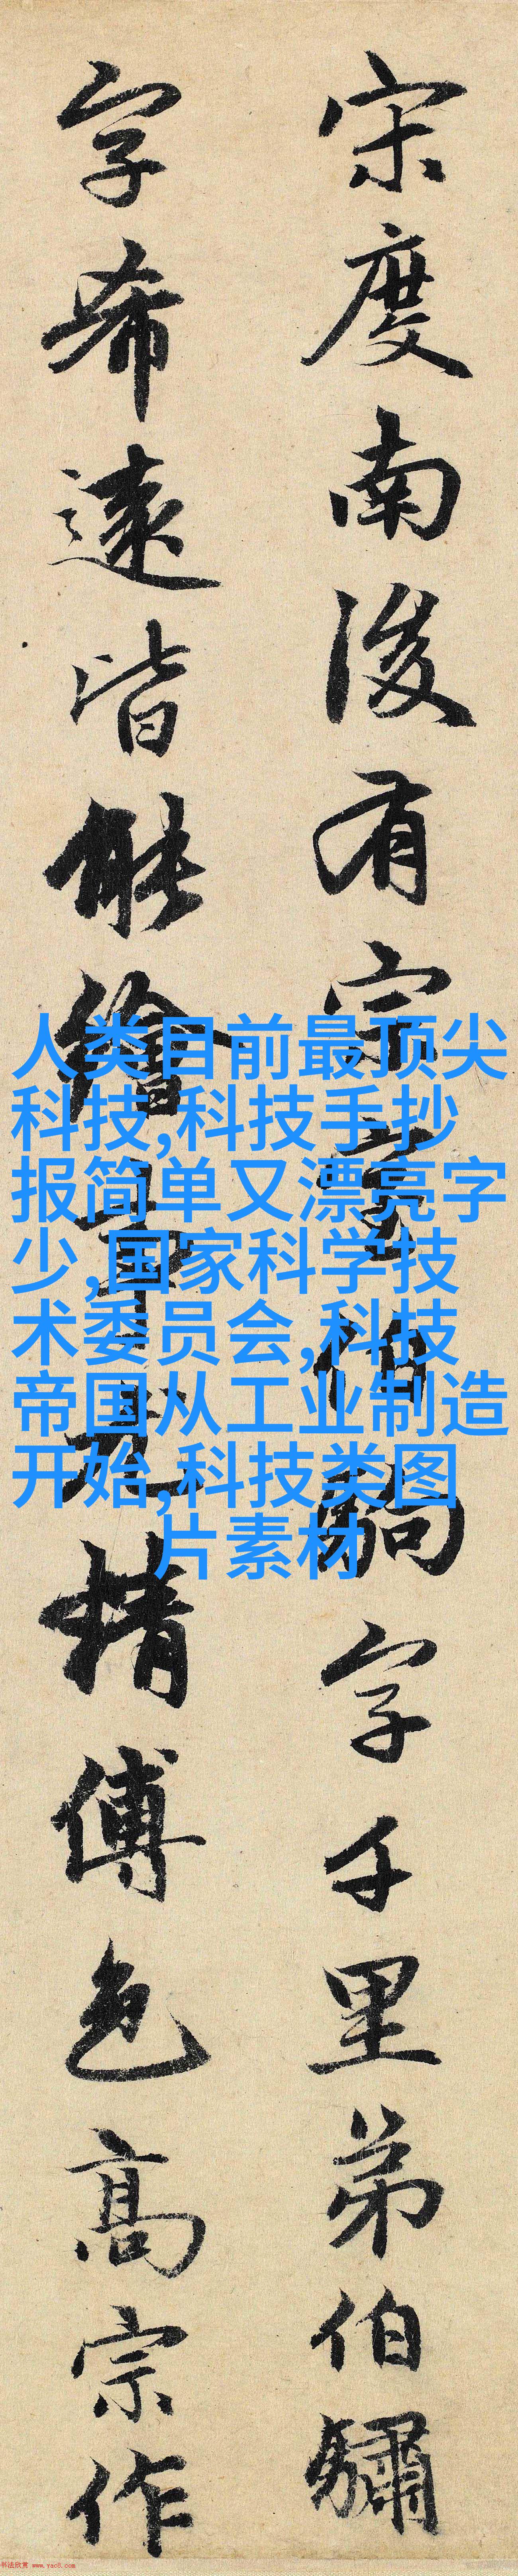 宋度南後有宗室伯駒字千里弟伯驌
字希遠皆能繪事尤精傅色高宗作
人类目前最顶尖
科技,科技手抄
报简单又漂亮字
少,国家科学技
术委员会,科技
帝国从工业制造
开始,科技类图
片素材
书法欣赏 www.yac8.com